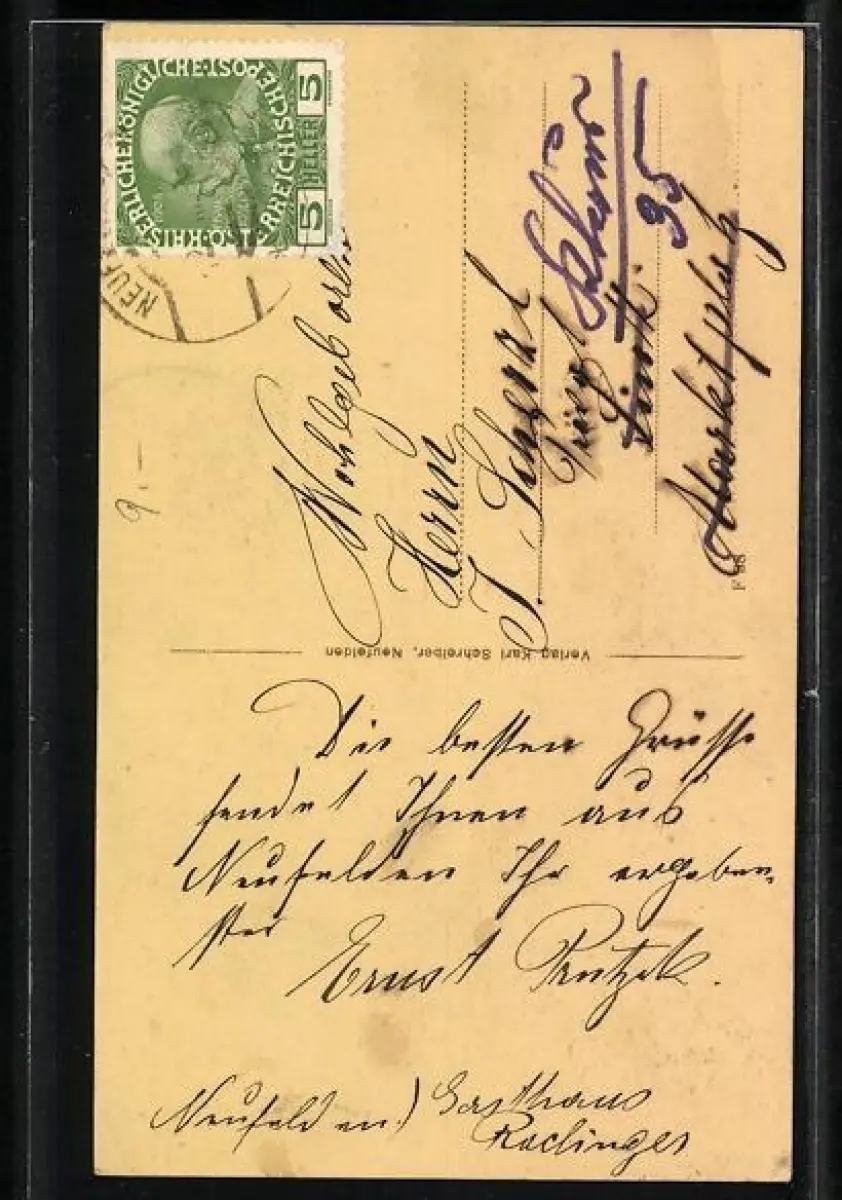 KAISERLICHE KÖNIGLICHE
ÖSTERREICHISCHE POST
5 HELLER 5
NEUF
9.-
Wohlgeboren
Herrn
J. Scherzl
Marktplatz
95
F 98
Verlag Karl Schreiber, Neufelden
Die besten Grüsse
sendet Ihnen aus
Neufelden Ihr ergeben-
ster
Ernst
Neufelden) Gasthaus
Raclinger